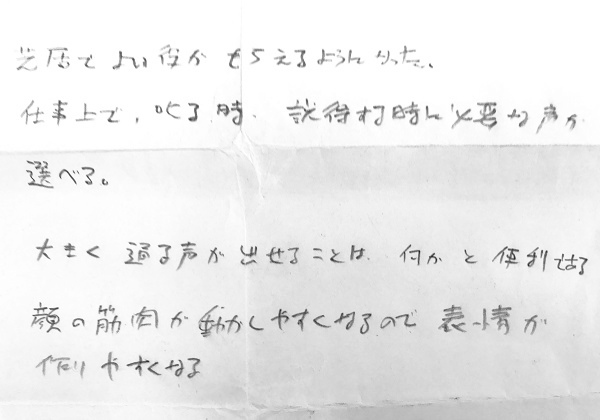 芝居でよい役がもらえるようになった。
仕事上で、叱る時、説得する時に必要な声が
選べる。
大きく通る声が出せることは、何かと便利である
顔の筋肉が動かしやすくなるので表情が
作りやすくなる